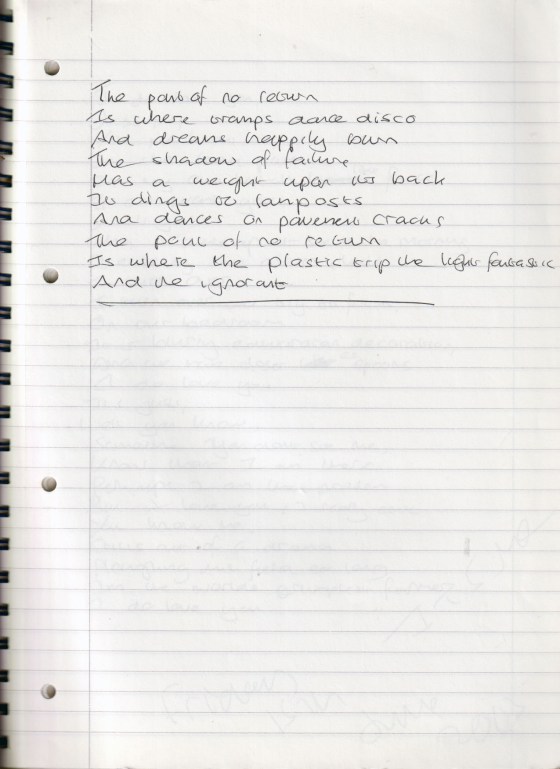 The point of no return
Is where tramps dance disco
And dreams happily burn
The shadow of failure
Has a weight upon its back
It clings to lamposts
And dances on pavement cracks
The point of no return
Is where the plastic trip the light fantastic
And the ignorant